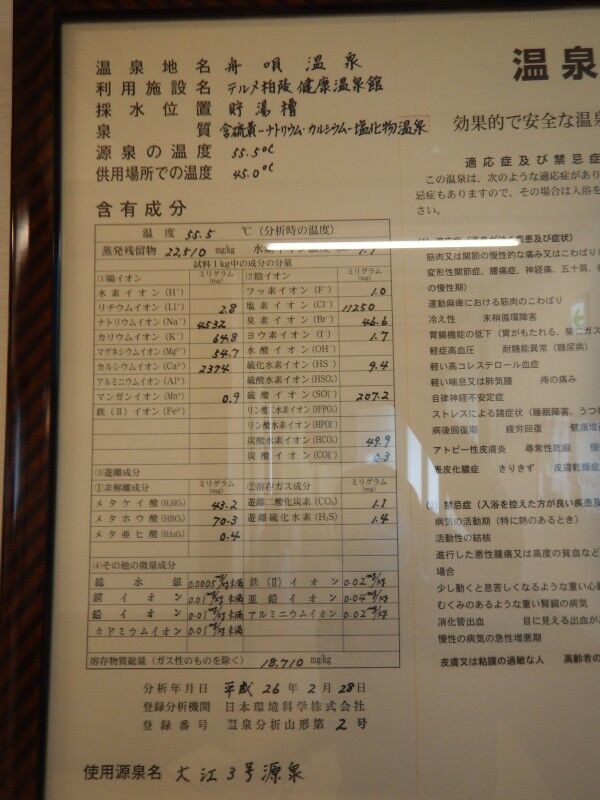 温泉地名 舟唄温泉
利用施設名 テルメ柏陵健康温泉館
採水位置 貯湯槽
泉質 含硫黄-ナトリウム・カルシウム-塩化物温泉
源泉の温度 55.5℃
供用場所での温度 45.0℃
含有成分
温度 55.5 ℃(分析時の温度)
蒸発残留物 22,510 mg/kg
試料1kg中の成分の分量
(1)陽イオン ミリグラム(mg) (2)陰イオン ミリグラム(mg)
水素イオン(H⁺) フッ素イオン(F⁻) 1.0
リチウムイオン(Li⁺) 2.8 塩素イオン(Cl⁻) 11250
ナトリウムイオン(Na⁺) 4532 臭素イオン(Br⁻) 46.6
カリウムイオン(K⁺) 64.8 ヨウ素イオン(I⁻) 1.7
マグネシウムイオン(Mg²⁺) 54.7 水酸イオン(OH⁻)
カルシウムイオン(Ca²⁺) 2374 硫化水素イオン(HS⁻) 9.4
アルミニウムイオン(Al³⁺) 硫酸水素イオン(HSO₄⁻)
マンガンイオン(Mn²⁺) 0.9 硫酸イオン(SO₄²⁻) 207.2
鉄(II)イオン(Fe²⁺) リン酸二水素イオン(H₂PO₄⁻)
リン酸水素イオン(HPO₄²⁻)
炭酸水素イオン(HCO₃⁻) 49.9
炭酸イオン(CO₃²⁻) 0.3
(3)遊離成分
①非解離成分 ミリグラム(mg) ②溶存ガス成分 ミリグラム(mg)
メタケイ酸(H₂SiO₃) 43.2 遊離二酸化炭素(CO₂) 1.1
メタホウ酸(HBO₂) 70.3 遊離硫化水素(H₂S) 1.4
メタ亜ヒ酸(HAsO₂) 0.4
(4)その他の微量成分
総水銀 0.0005mg/kg未満 鉄(II)イオン 0.02mg/kg
銅イオン 0.01mg/kg未満 亜鉛イオン 0.04mg/kg
鉛イオン 0.01mg/kg未満 アルミニウムイオン 0.02mg/kg
カドミウムイオン 0.01mg/kg未満
溶存物質総量(ガス性のものを除く) 18,710 mg/kg
分析年月日 平成26年2月28日
登録分析機関 日本環境科学株式会社
登録番号 温泉分析山形第2号
使用源泉名 大江3号源泉
温泉
効果的で安全な温泉
適応症及び禁忌症
この温泉は、次のような適応症があり
忌症もありますので、その場合は入浴を
さい。
筋肉又は関節の慢性的な痛み又はこわばり
変形性関節症、腰痛症、神経痛、五十肩、
の慢性期)
運動麻痺における筋肉のこわばり
冷え性 末梢循環障害
胃腸機能の低下(胃がもたれる、腸にガス
軽症高血圧 耐糖能異常(糖尿病)
軽い高コレステロール血症
軽い喘息又は肺気腫 痔の痛み
自律神経不安定症
ストレスによる諸症状(睡眠障害、うつ
病後回復期 疲労回復 健康増
アトピー性皮膚炎 尋常性乾癬 慢
表皮化膿症 きりきず 皮膚乾燥症
(2)禁忌症(入浴を控えた方が良い疾患及
病気の活動期(特に熱のあるとき)
活動性の結核
進行した悪性腫瘍又は高度の貧血など
場合
少し動くと息苦しくなるような重い心
むくみのあるような重い腎臓の病気
消化管出血 目に見える出血があ
慢性の病気の急性増悪期
皮膚又は粘膜の過敏な人 高齢者の